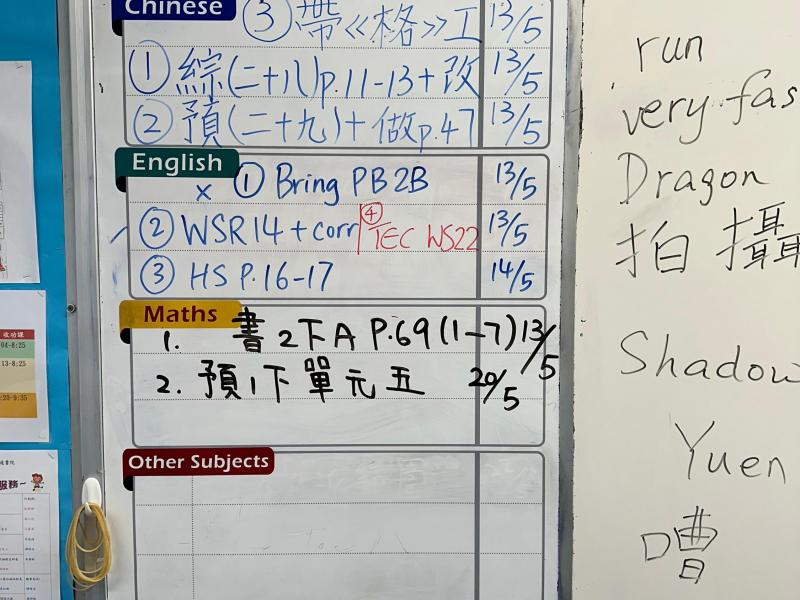 Chinese
③ 帶《格》工 13/5
① 綜(二十八)p.11-13+改 13/5
② 預(二十九)+做p.47 13/5
English
x ① Bring PB 2B 13/5
② WSR14 + corr ④ TEC WS22 13/5
③ HS P.16-17 14/5
Maths
1. 書2下A P.69(1-7) 13/5
2. 預1下單元五 20/5
Other Subjects
run
very fas
Dragon
拍攝
Shadow
Yuen
嘈
收功課
04-8:25
13-8:25
:20-9:35
服務~